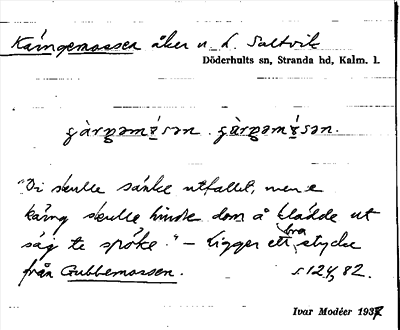 Käringemossen åker n. h. Saltvik
Döderhults sn, Stranda hd, Kalm. l.
"Di skulle sänke utfallet, men e
käring skulle hindre dom å klädde ut
säg te spöke." – Ligger ett bra stycke
från Gubbemossen. s. 124, 82.
Ivar Modéer 1937